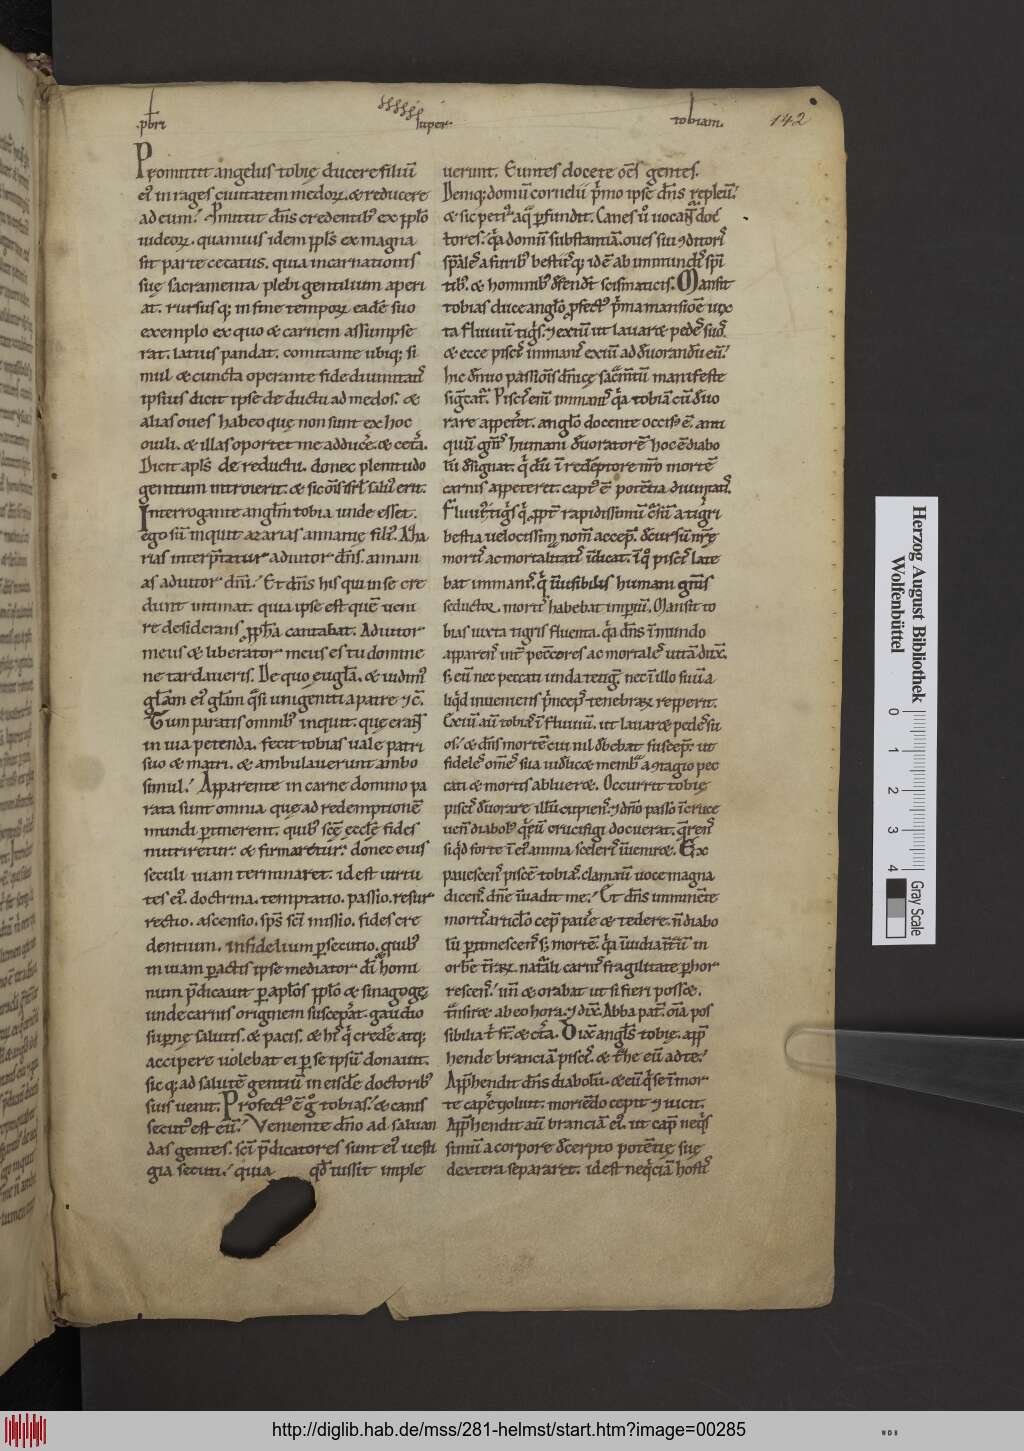 .pbri
super.
tobiam.
142
Promittit angelus tobie ducere filiū
ei' in rages ciuitatem medoꝝ. & reducere
ad eum. Pmittit dn̄s credentib' ex pplo
iudeoꝝ. quamuis idem ppls ex magna
sit parte cecatus. quia incarnationis
suę sacramenta plebi gentilium aperi
at. rursusq; in fine temporꝝ eadē suo
exemplo ex quo & carnem assumpse
rat. latius pandat. comitante ubiq; si
mul & cuncta operante fide diuinitatis
ipsius dicit ipse de ductu ad medos. &
alias oues habeo quę non sunt ex hoc
ouili. & illas oportet me adducere. & cetā.
Dicit apls de reductu. donec plenitudo
gentium introierit. & sic om̄s isrl saluus erit.
Interrogante anglm tobia unde esset.
ego sū inquit azarias ananię fili'. Aza
rias interptatur adiutor dn̄s. anani
as adiutor dn̄i. Et dn̄s his qui in se cre
dunt intimat. quia ipse est quē ueni
re desiderans ppha cantabat. Adiutor
meus & liberator meus es tu domine
ne tardaueris. De quo eugła. & uidim'
głam ei' głam qsi unigeniti a patre &c̄.
Tum paratis omnib' inquit. quę erant
in uia petenda. fecit tobias uale patri
suo & matri. & ambulauerunt ambo
simul. Apparente in carne domino pa
rata sunt omnia quę ad redemptionē
mundi ptinerent. quib' scę ecclę fides
nutriretur & firmaretur. donec eius
seculi uiam terminaret. id est uirtu
tes ei'. doctrina. temptatio. passio. resur
rectio. ascensio. sps sci missio. fides cre
dentium. infidelium psecutio. quib'
in uiam pactis ipse mediator di & homi
num pdicauit p aplos pplo & sinagogę
unde carnis originem susceperat. gaudio
supnę salutis. & pacis. & his q crede atq;
accipere uolebat ei p se ipsū donauit.
sic q; ad salutē gentiū in eisdē doctorib'
suis uenit. Profect' ē g tobias. & canis
secut' est eū. Veniente dn̄o ad saluan
das gentes. sci pdicatores sunt ei' uesti
gia secuti. quia qd iussit imple
uerunt. Euntes docete om̄s gentes.
Deniq; domū cornelii pmo ipse dn̄s repleuit
& sic petr' aqua pfundit. Canes u' uocant doc
tores. qa domū substantiā. oues sui 9ditoris
spiales a furib' bestiisq; id ē ab inmundis spiri
tib'. & hominib' dfendit scismaticis. Mansit
tobias duce anglo pfect' pma mansione iux
ta fluuiū tigris. & exiuit ut lauaret pedes suos.
& ecce piscis inmanis exiuit ad deuorandū eū.
hic denuo passionis dn̄icę sacmtū manifeste
significat. Piscis enī inmanis qa tobiā cū deuo
rare appeteret. anglo docente occis' ē. anti
quū genis humani deuoratorē hoc ē diabo
lū designat. q dū in redemptore nr̄o mortē
carnis appeteret. capt' ē potentia diuinitatis.
Fluui' tigris q ppt rapidissimū cursū a tigri
bestia uelocissima nom̄ accepit. decursū nr̄ę
mortis ac mortalitatis indicat. in q' piscis late
bat inmanis. q inuisibilis humani genis
seductor mortis habebat imperiū. Mansit to
bias iuxta tigris fluenta. qa dn̄s in mundo
apparens int peccatores ac mortales uitā duxit.
s; eū nec peccati unda tetigit. nec in illo suū a
liqd inueniens princeps tenebraꝝ repperit.
Exiuit aū tobias in fluuiū. ut lauaret pedes su
os. & dn̄s mortē cui nil debebat suscepit. ut
fideles om̄es sua uidelicet membra a 9tagio pec
cati & mortis ablueret. Occurrit tobię
piscis deuorare illū cupiens. & dn̄o passo in cruce
uenit diabol' q eū crucifigi docuerat. querens
siqd forte in ei' anima sceleris inueniret. Ex
pauescens piscē tobias. clamauit uoce magna
dicens. dn̄e inuadit me. Et dn̄s imminente
mortis articlo cepit pauere & tedere. ñ diabo
lū ptimescens s; mortē. qa inuidia intrauit in
orbē terraꝝ. naturali carnis fragilitate phor
rescens. un̄ & orabat ut si fieri posset.
transiret ab eo hora. & dix̄. Abba pat. om̄ia pos
sibilia t' sunt. & cet̄a. Dixit angls tobię. app
hende branciā piscis. & trahe eū ad te.
Apphendit dn̄s diabolū. & eū q se in mor
te capere uoluit. moriendo cepit & uicit.
Apphendit aū branciā ei'. ut caput neqs
simū a corpore decerpto potentię suę
dextera separaret. id est neqtiā hostis
Herzog August Bibliothek
Wolfenbüttel
0 1 2 3 4
Gray Scale
http://diglib.hab.de/mss/281-helmst/start.htm?image=00285